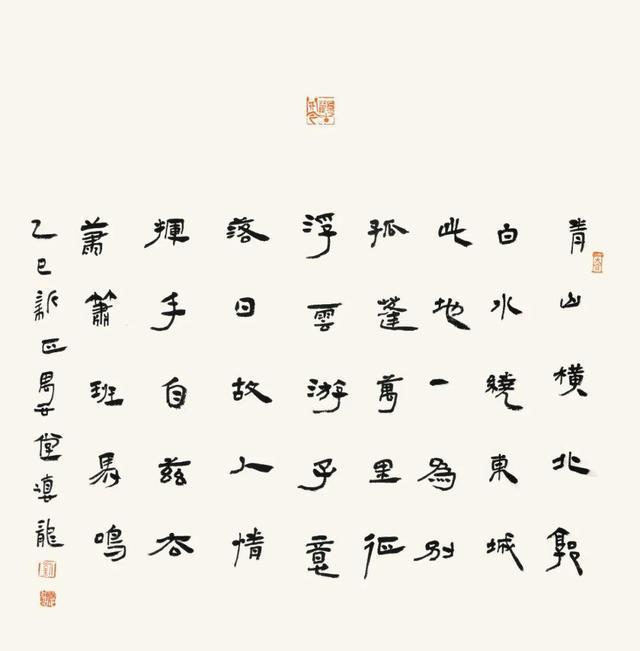 青山橫北郭
白水繞東城
此地一為別
孤蓬萬里征
浮雲游子意
落日故人情
揮手自茲去
蕭簫班馬鳴
乙巳新正堂龍